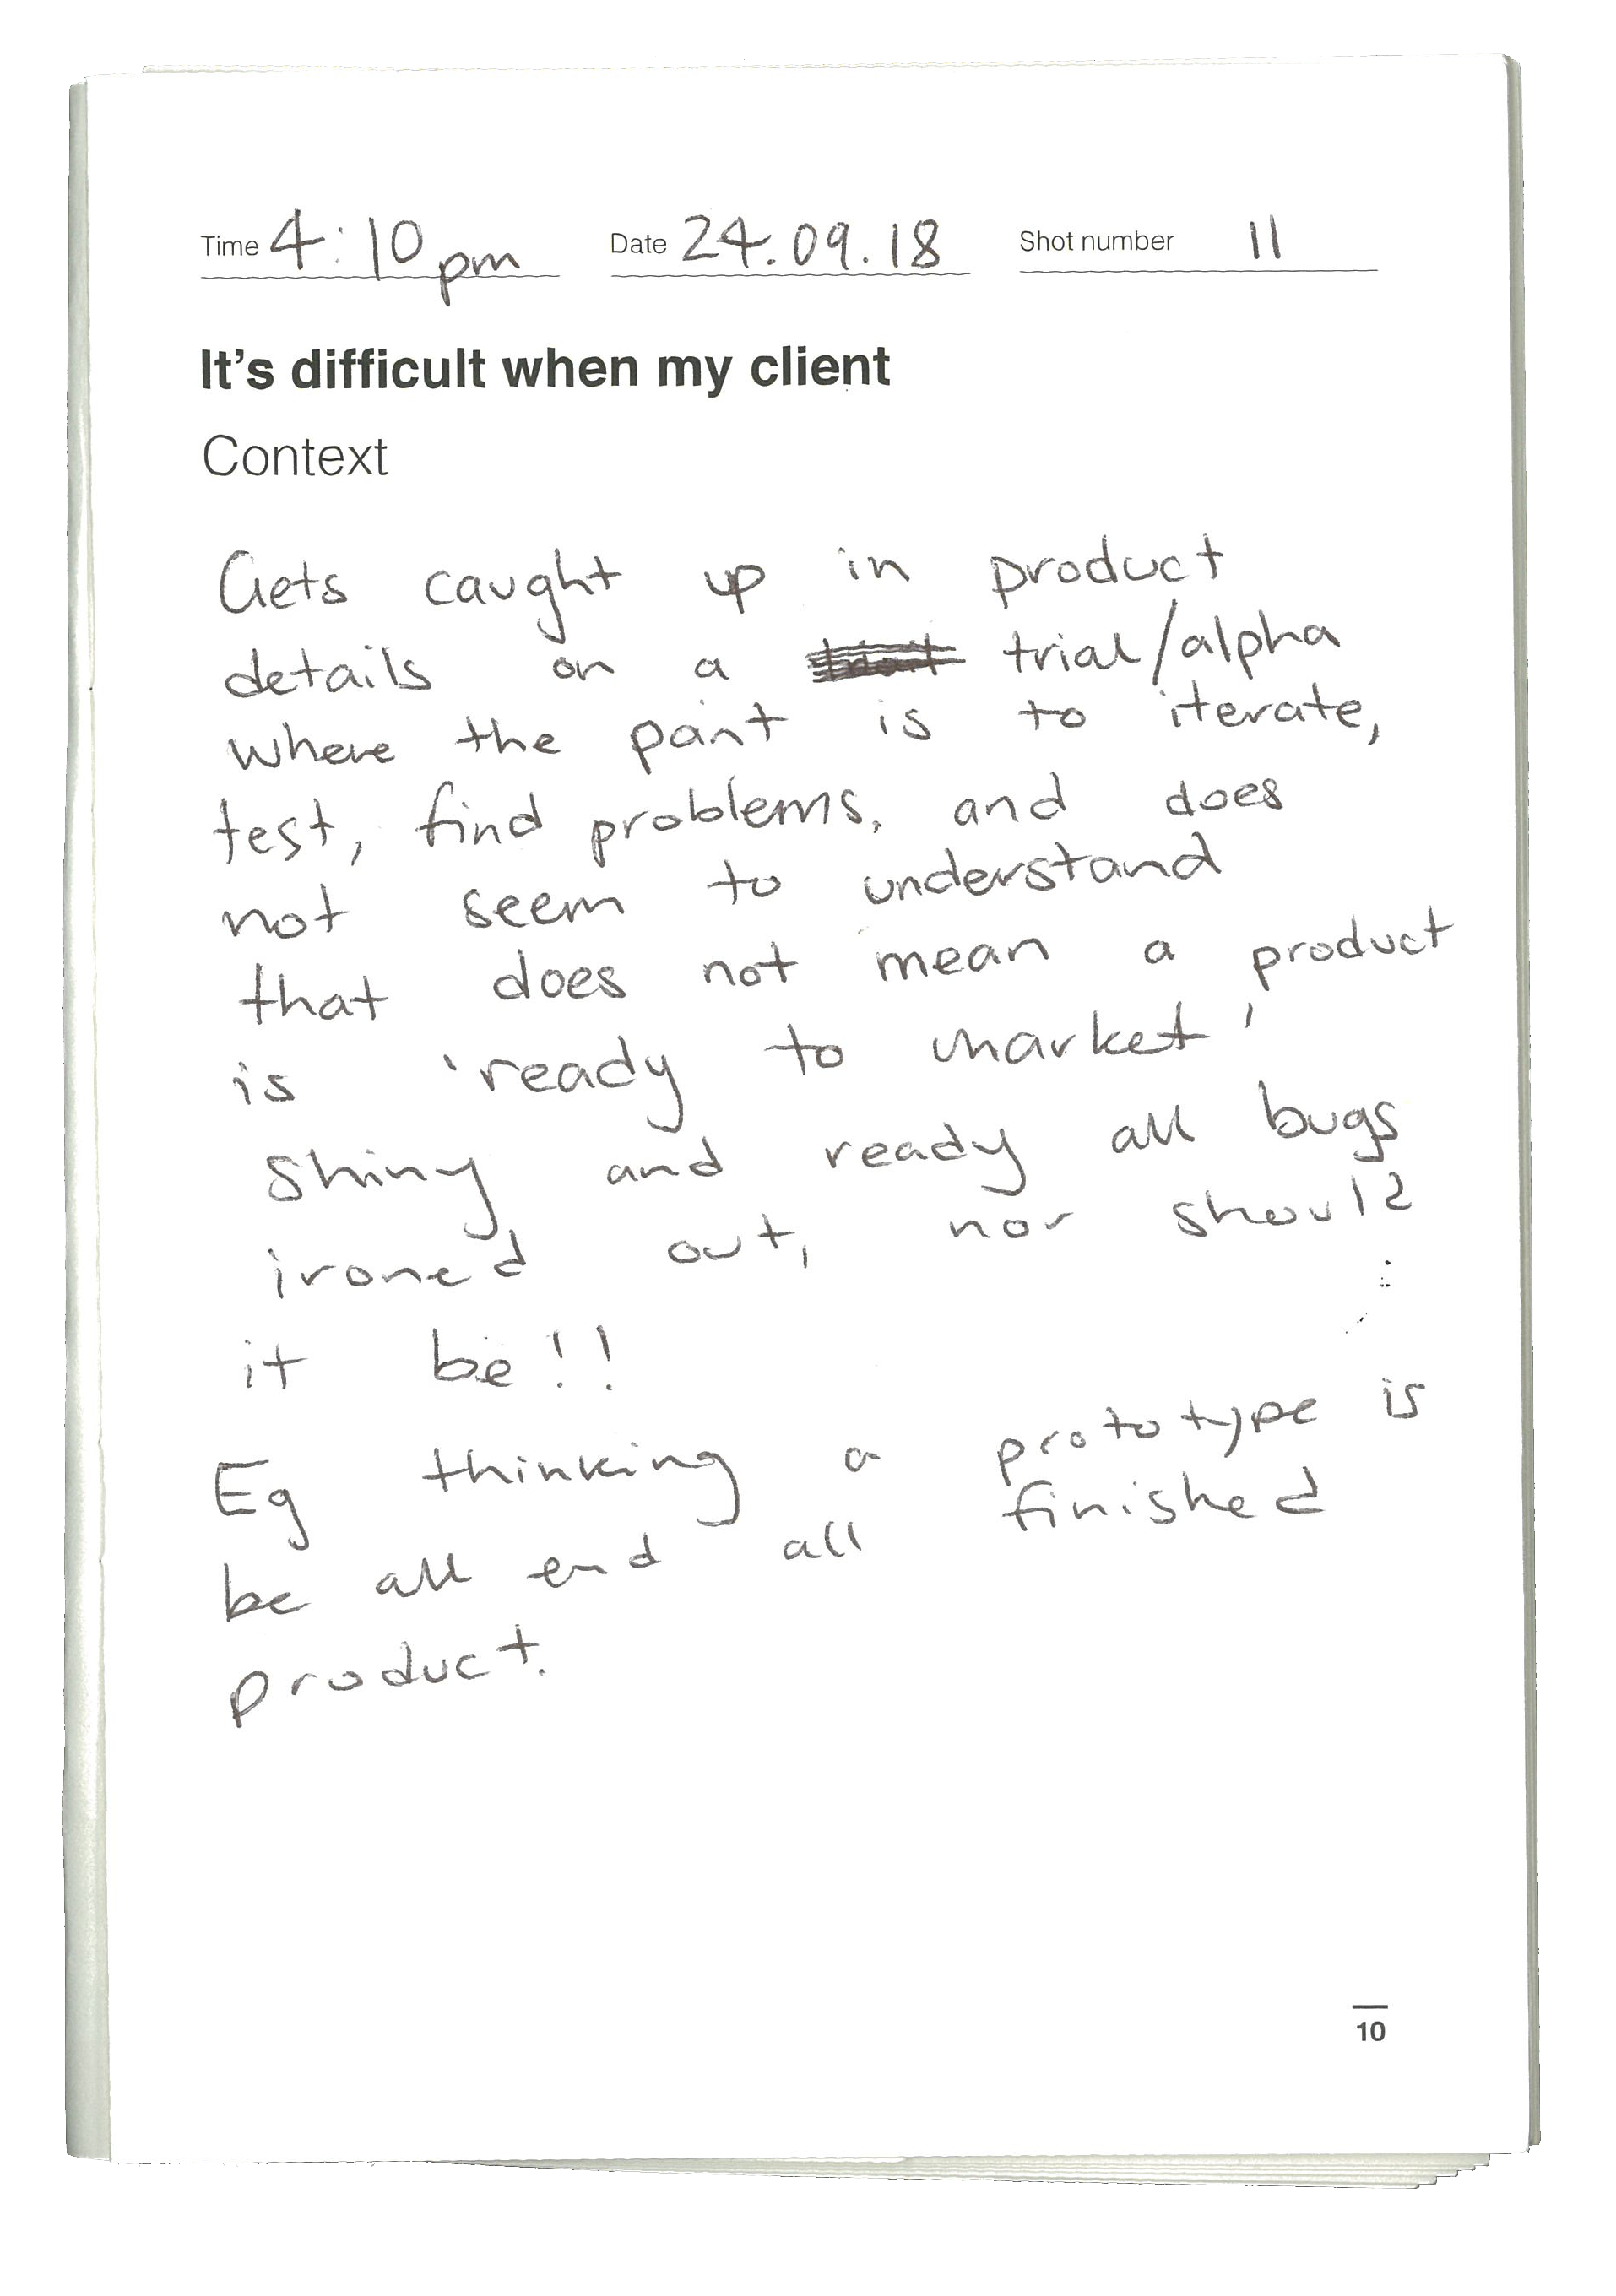 Time 4:10pm Date 24.09.18 Shot number 11
It's difficult when my client
Context
Gets caught up in product
details on a trial/alpha
where the point is to iterate,
test, find problems, and does
not seem to understand
that does not mean a product
is 'ready to market'
shiny and ready all bugs
ironed out, nor should
it be!!
Eg thinking a prototype is
be all end all finished
product.
10